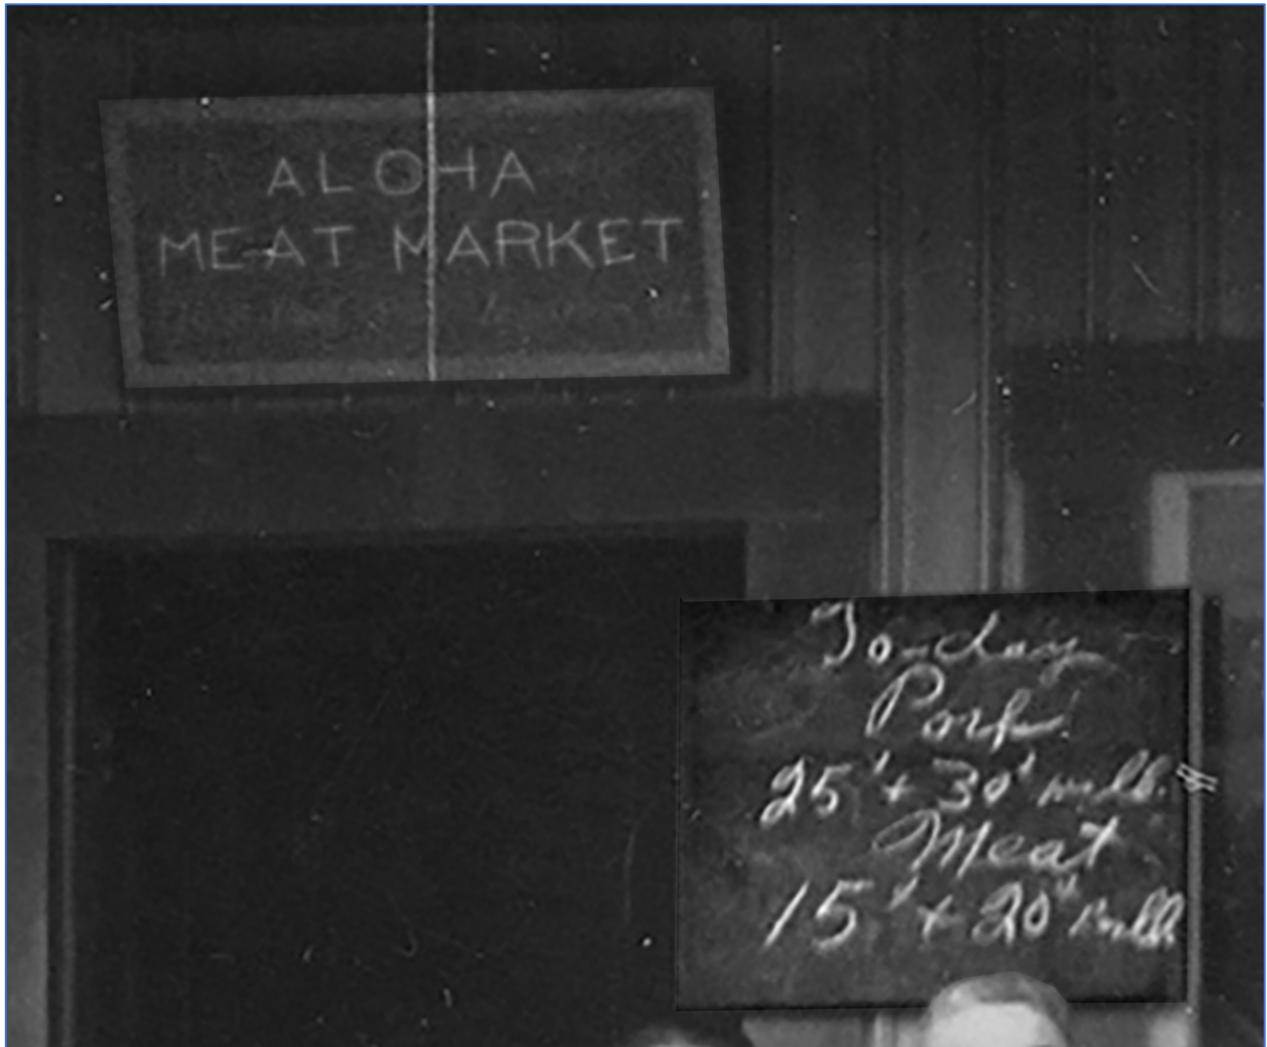 ALOHA
MEAT MARKET
To-day
Pork
25' + 30' lb.
Meat
15' + 20' lb